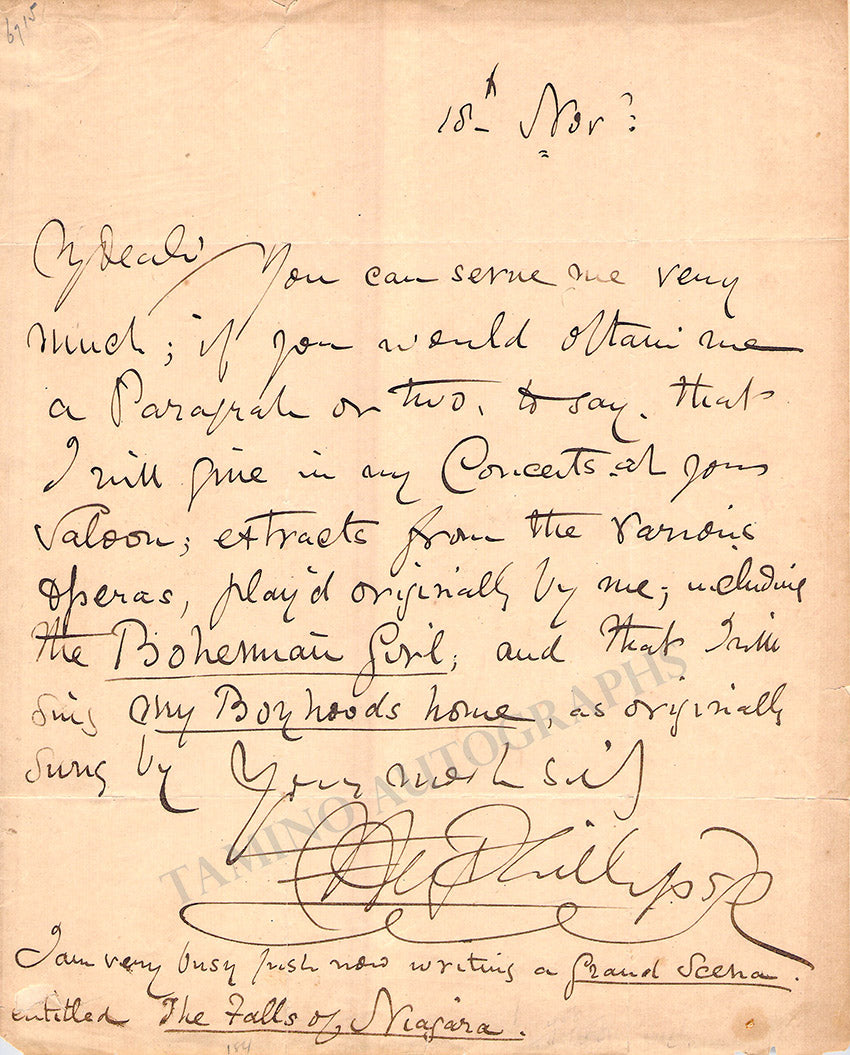 6715
18th Novr:
My dear Sir You can serve me very
much; if you would obtain me
a Paragraph or two, to say, that
I will give in my Concerts at your
Saloon; extracts from the various
Operas, play'd originally by me; including
the Bohemian Girl; and that I will
sing My Boyhoods home, as originally
sung by Yours much Sir
Hy Phillips
I am very busy just now writing a Grand Scena.
entitled The Falls of Niagara.
154
TAMINO AUTOGRAPHS